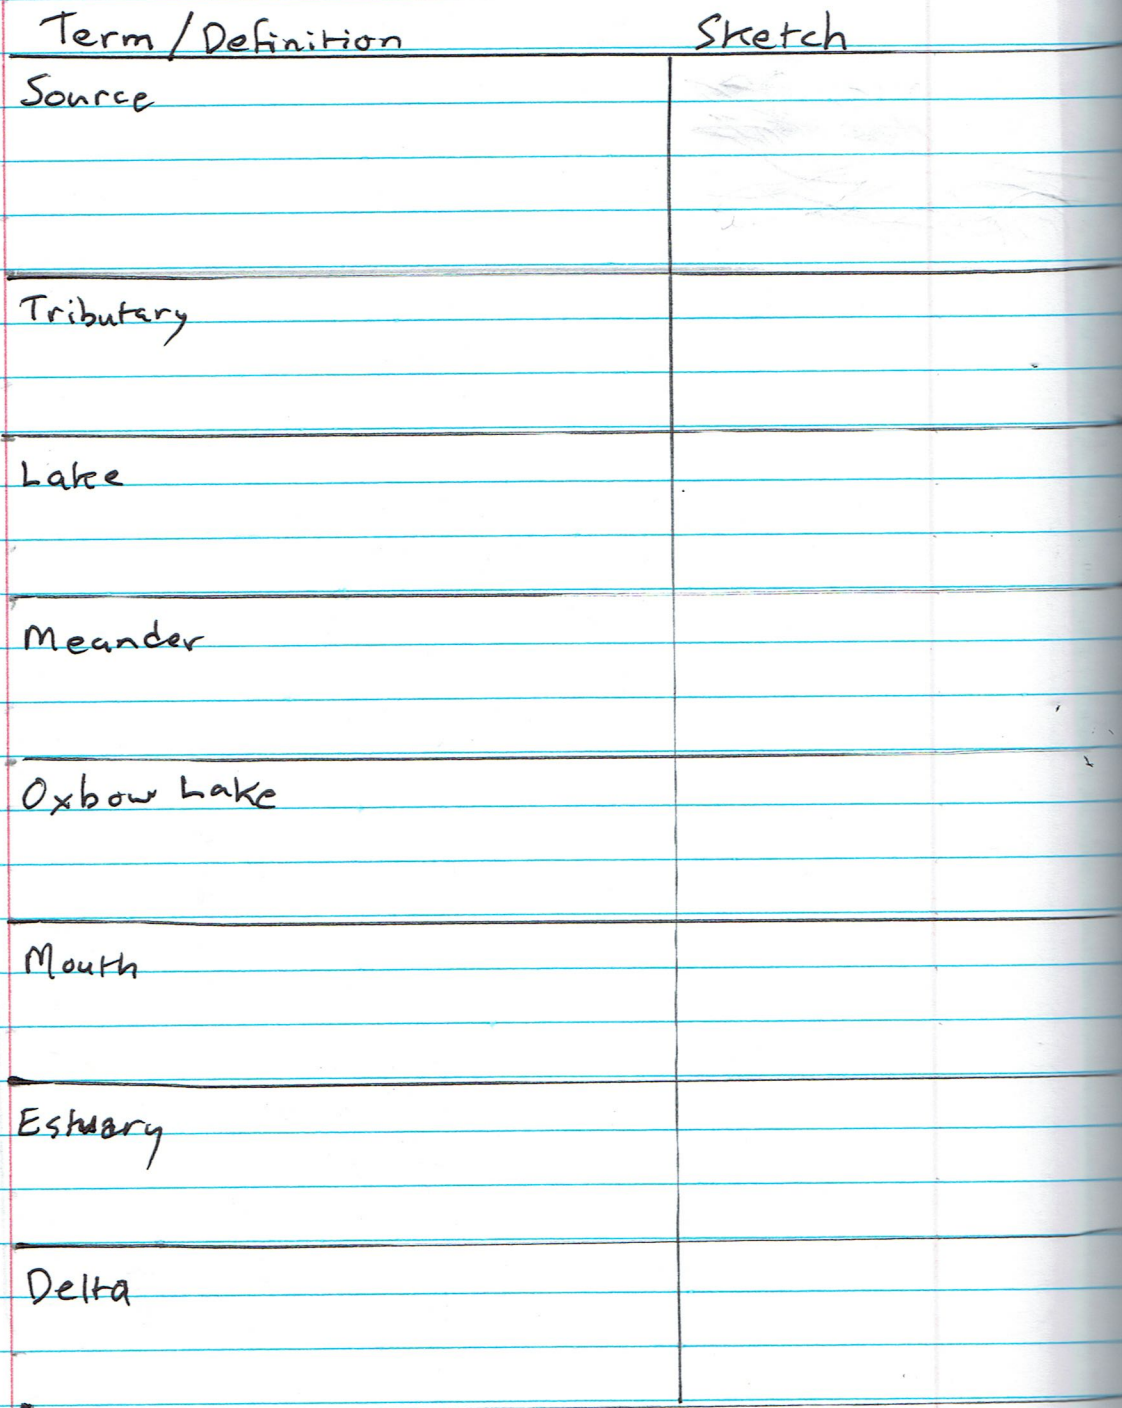 Term / Definition Sketch
Source
Tributary
Lake
Meander
Oxbow Lake
Mouth
Estuary
Delta